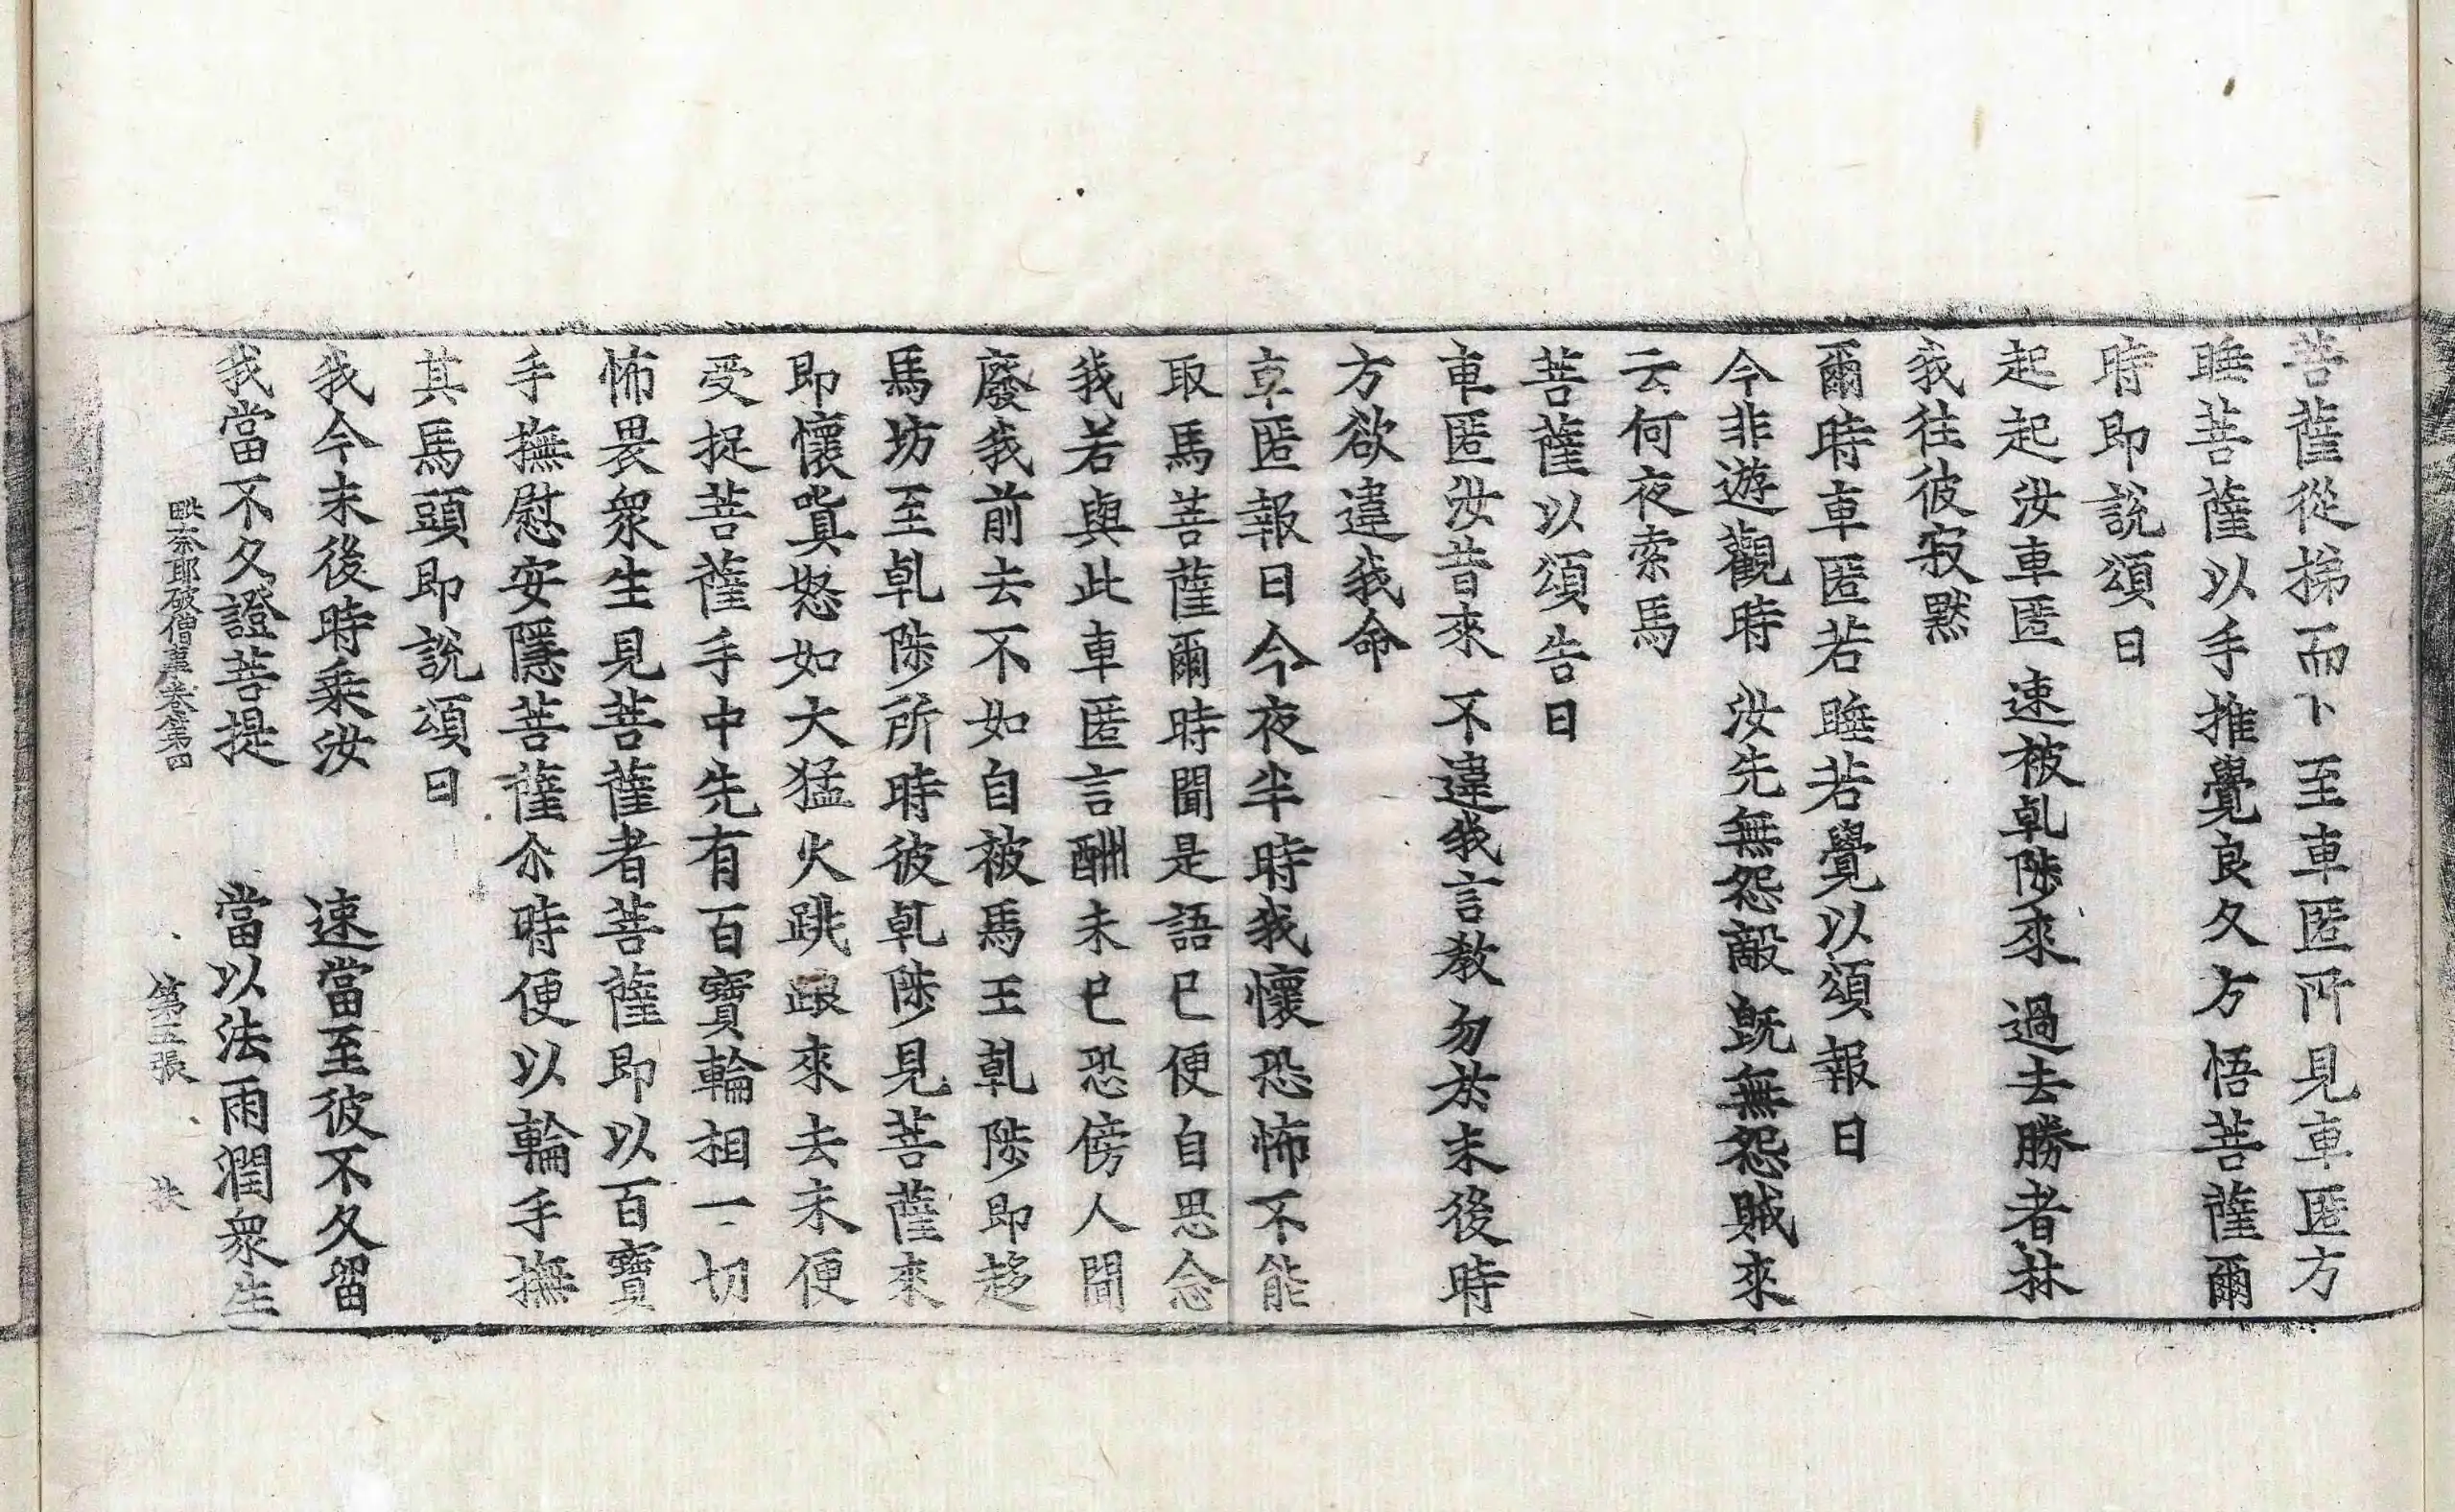 菩薩從梯而下至車匿所見車匿方
睡菩薩以手推覺良久方悟菩薩爾
時即說頌曰
起起汝車匿 速被乹陟來 過去勝者林
我往彼寂默
爾時車匿若睡若覺以頌報曰
今非遊觀時 汝先無怨敵 旣無怨賊來
云何夜索馬
菩薩以頌告曰
車匿汝昔來 不違我言教 勿於末後時
方欲違我命
車匿報曰今夜半時我懷恐怖不能
取馬菩薩爾時聞是語已便自思念
我若與此車匿言酬未已恐傍人聞
廢我前去不如自被馬王乹陟即趍
馬坊至乹陟所時彼乹陟見菩薩來
即懷瞋怒如大猛火跳踉來去未便
受捉菩薩手中先有百寶輪相一切
怖畏衆生見菩薩者菩薩即以百寶
手撫慰安隱菩薩尒時便以輪手撫
其馬頭即說頌曰
我今末後時乗汝 速當至彼不久留
我當不久證菩提 當以法雨潤衆生
毗奈耶破僧事卷第四 第五張